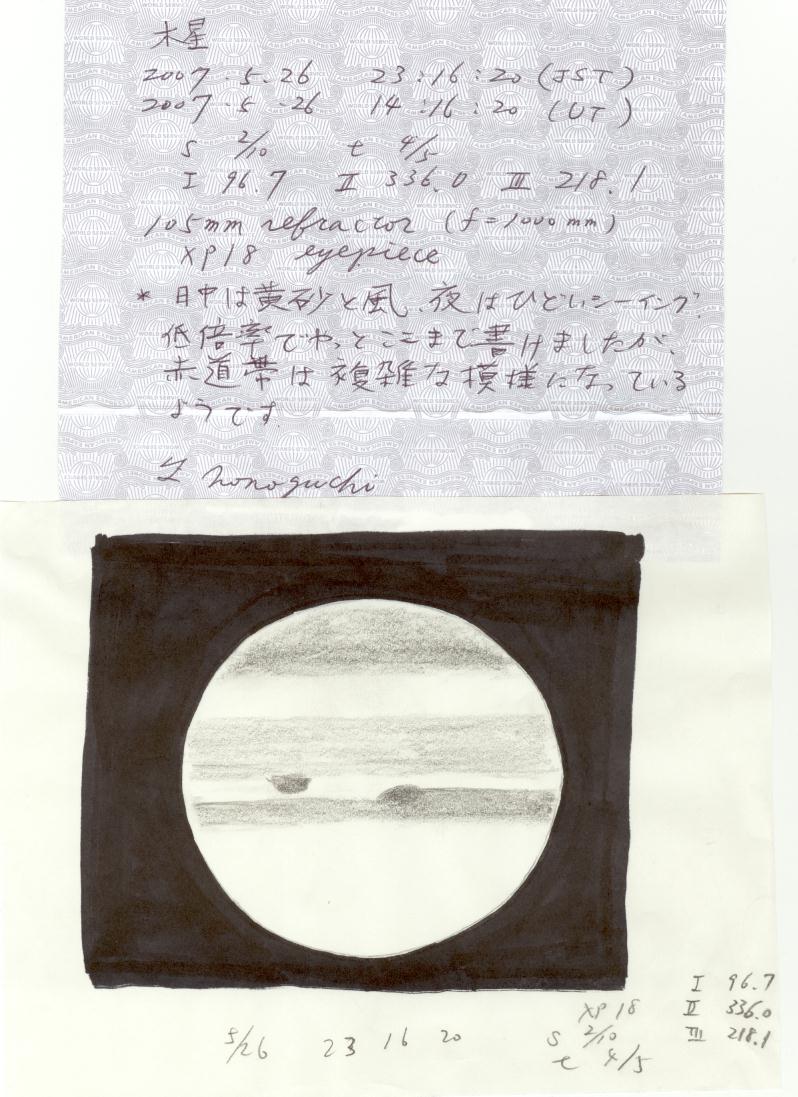 木星
2007.5.26 23:16:20 (JST)
2007.5.26 14:16:20 (UT)
s 2/10 t 4/5
I 96.7 II 336.0 III 218.1
105mm refractor (f=1000mm)
XP18 eyepiece
* 日中は黄砂と風、夜はひどいシーイング。
低倍率でやっとここまで書けましたが、
赤道帯は複雑な模様になっている
ようです。
Y nonoguchi
I 96.7
XP 18 II 336.0
5/26 23 16 20 s 2/10 III 218.1
t 4/5